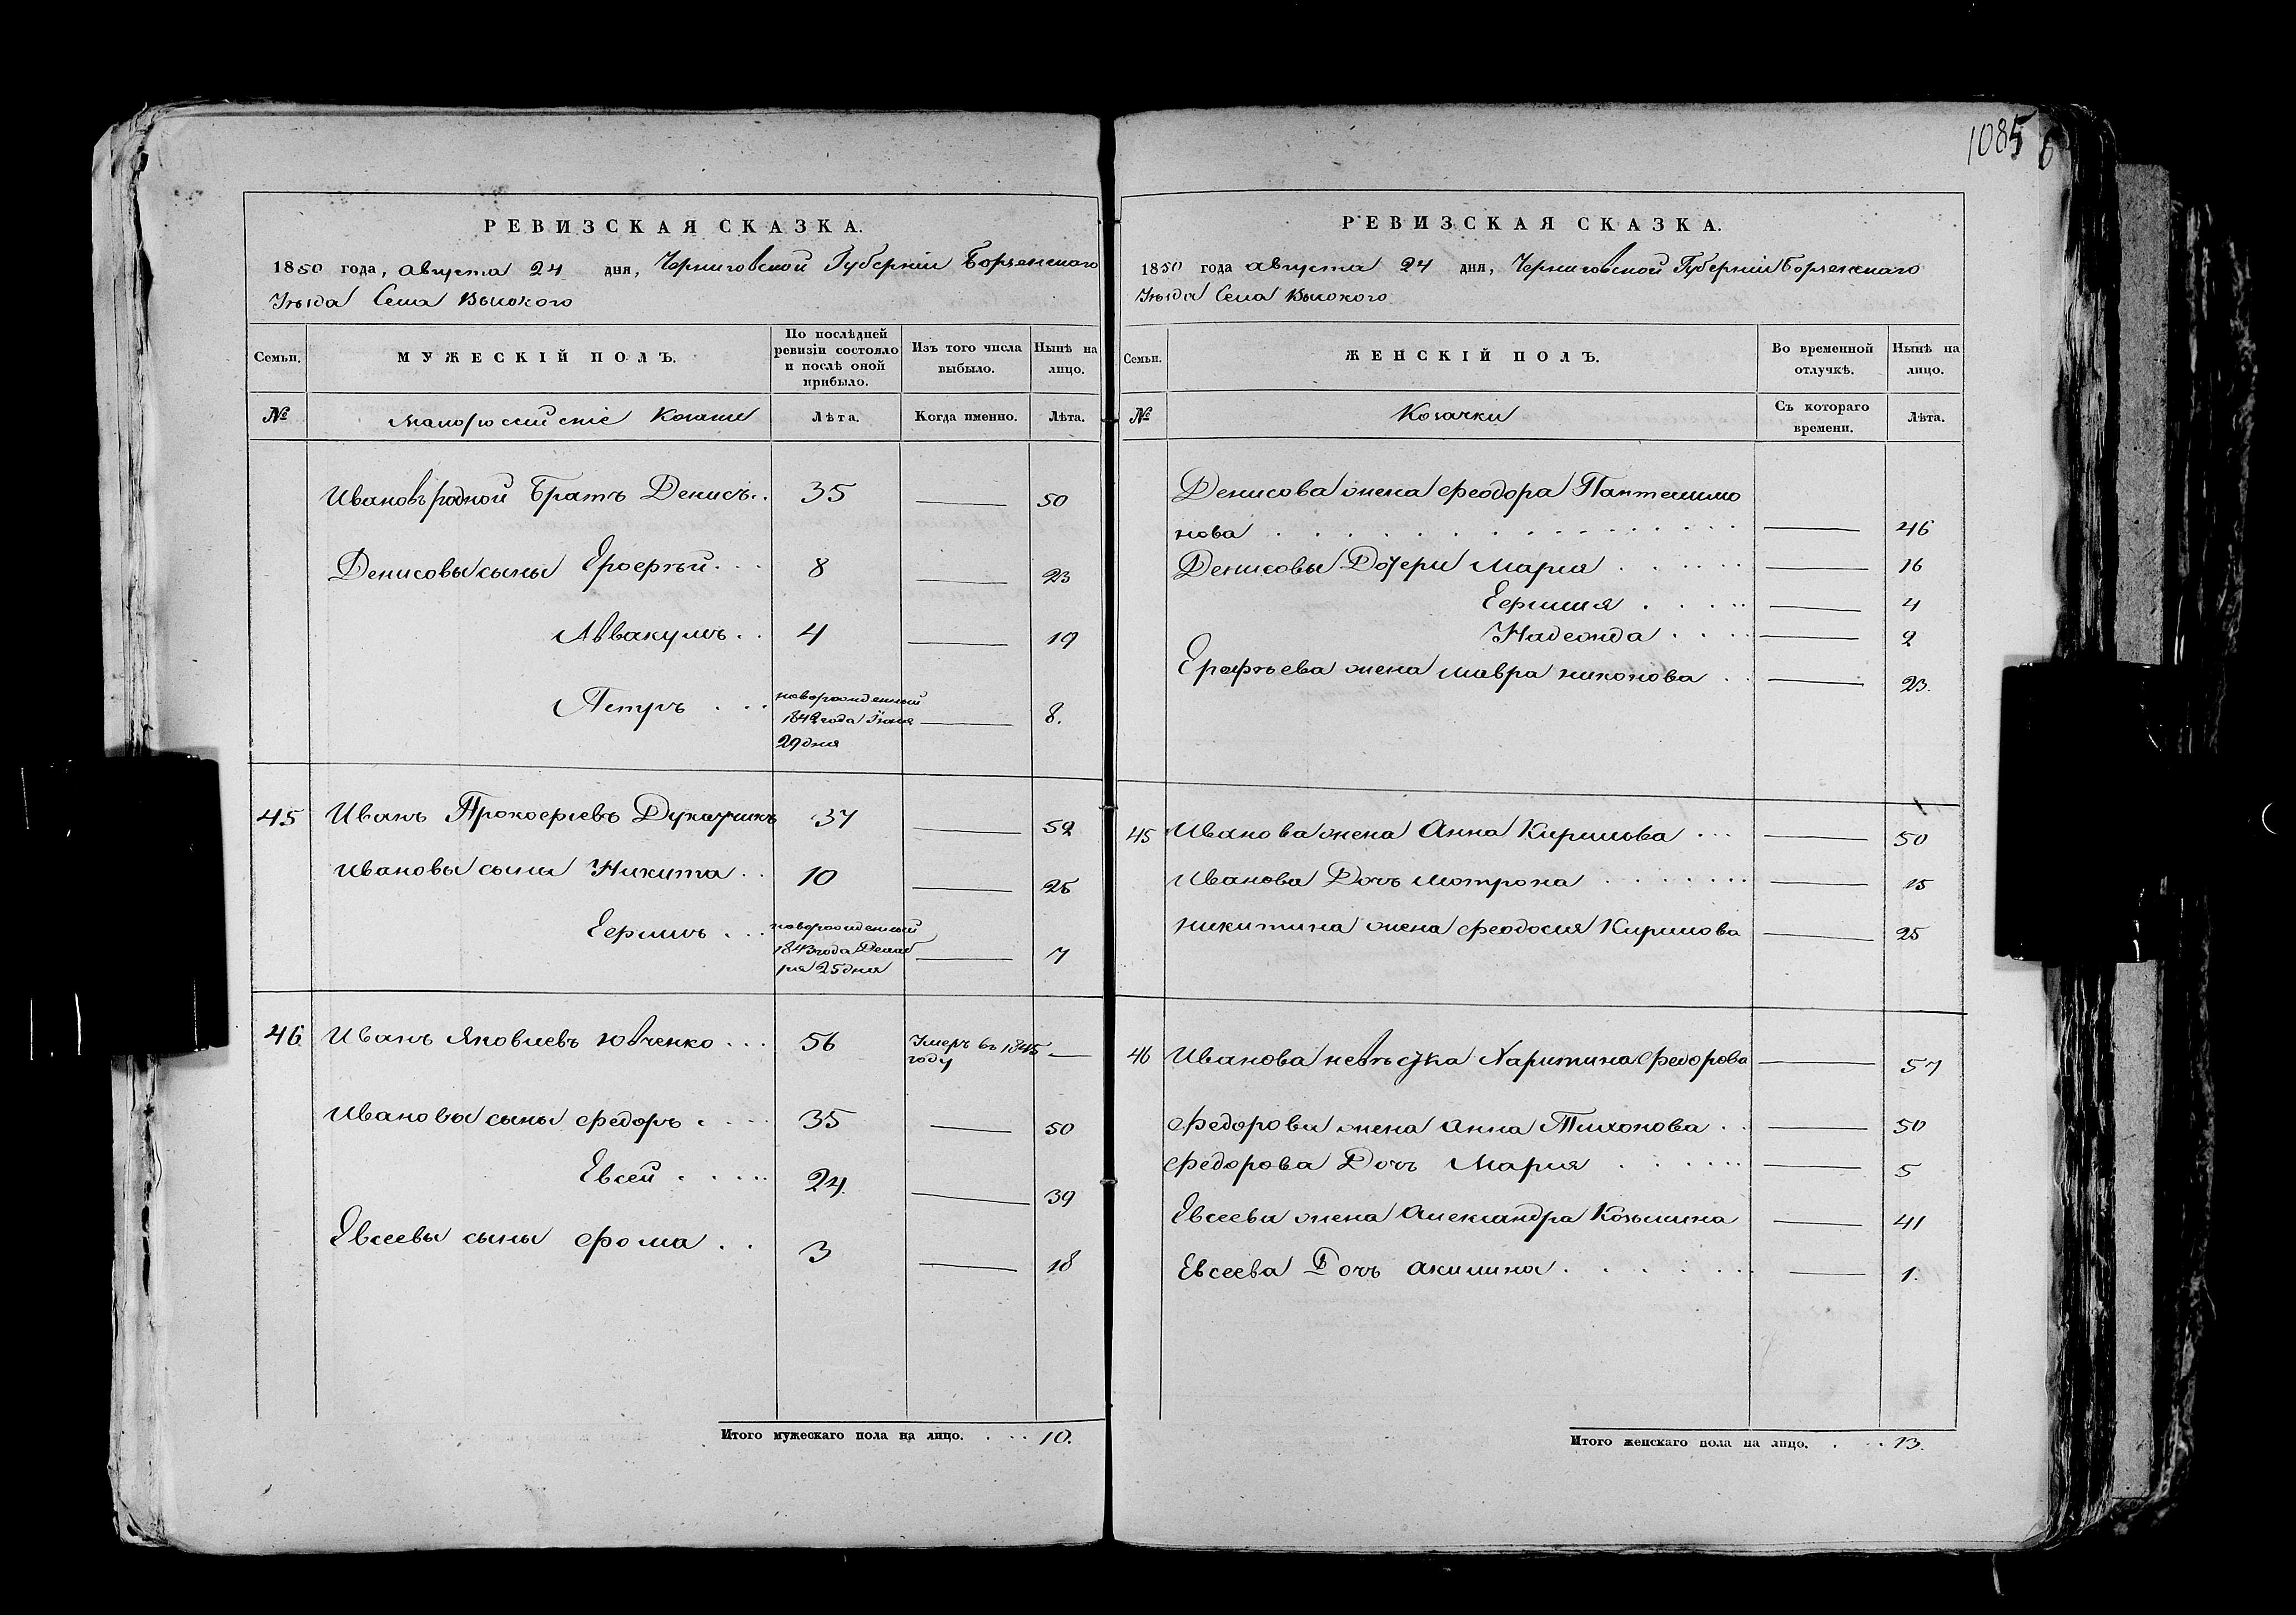 1085 6
РЕВИЗСКАЯ СКАЗКА.
1850 года, августа 24 дня, Черниговской Губерніи Борзенского
Уѣзда Села Высокого
Семьи. МУЖЕСКІЙ ПОЛЪ. По послѣдней ревизіи состояло и послѣ оной прибыло. Изъ того числа выбыло. Нынѣ на лицо.
№ Малороссийскіе Козаки Лѣта. Когда именно. Лѣта.
Ивановъ родной Братъ Денисъ.. 35 — 50
Денисовы сыны Ерофѣй... 8 — 23
Аввакумъ.. 4 — 19
Петръ ... новорожденный
1842 года Іюня — 8.
29 дня
45 Иванъ Прокофіевъ 37 — 52
Ивановы сыны Никита.. 10 — 25
Ефимъ ... новорожденный
1843 года Декаб — 7
ря 25 дня
46 Иванъ Яковлевъ Ювченко ... 56 Умеръ въ 1845 —
году
Ивановы сыны Федоръ.... 35 — 50
Евсей ..... 24. — 39
Евсеевы сыны Фома .. 3 — 18
Итого мужескаго пола на лицо. ... 10.
РЕВИЗСКАЯ СКАЗКА.
1850 года августа 24 дня, Черниговской Губерніи Борзенского
Уѣзда Села Высокого
Семьи. ЖЕНСКІЙ ПОЛЪ. Во временной отлучкѣ. Нынѣ на лицо.
№ Козачки Съ котораго времени. Лѣта.
Денисова жена Феодора Пантелимо
нова ............ — 46
Денисовы Дочери Мария ...... — 16
Ефимия ..... — 4
Надежда .... — 2
Ерофѣева жена Мавра Никонова .. — 23.
45 Иванова жена Анна Кирилова ... — 50
Иванова Дочь Мотрона ....... — 15
Никитина жена Феодосия Кирилова — 25
46 Иванова невѣстка Харитина Федорова — 57
Федорова жена Анна Тихонова .. — 50
Федорова Дочь Мария ...... — 5
Евсеева жена Александра Козьмина — 41
Евсеева Дочь Акилина ...... — 1.
Итого женскаго пола на лицо. ... 13.